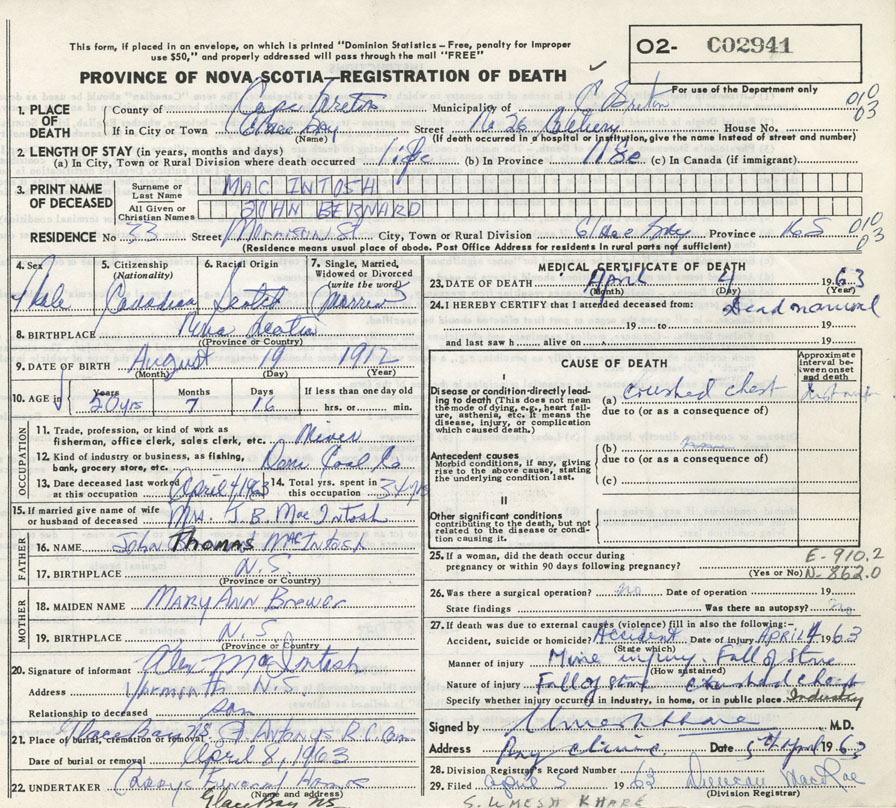 This form, if placed in an envelope, on which is printed "Dominion Statistics - Free, penalty for improper
use $50," and properly addressed will pass through the mail "FREE"
O2- C02941
For use of the Department only
PROVINCE OF NOVA SCOTIA—REGISTRATION OF DEATH
1. PLACE OF DEATH
County of Cape Breton Municipality of C. Breton
010 03
If in City or Town Glace Bay (Name) Street No 26 Colliery House No.
(If death occurred in a hospital or institution, give the name instead of street and number)
2. LENGTH OF STAY (in years, months and days)
(a) In City, Town or Rural Division where death occurred life (b) In Province life (c) In Canada (if immigrant)
3. PRINT NAME OF DECEASED
Surname or Last Name MAC INTOSH
All Given or Christian Names JOHN BERNARD
RESIDENCE No 33 Street Morrison St. City, Town or Rural Division Glace Bay Province N S
010 03
(Residence means usual place of abode. Post Office Address for residents in rural parts not sufficient)
4. Sex Male
5. Citizenship (Nationality) Canadian
6. Racial Origin Scotch
7. Single, Married, Widowed or Divorced (write the word) Married
8. BIRTHPLACE Nova Scotia
(Province or Country)
9. DATE OF BIRTH August 19 1912
(Month) (Day) (Year)
10. AGE in Years 50 yrs Months 7 Days 16 If less than one day old hrs. or min.
OCCUPATION
11. Trade, profession, or kind of work as fisherman, office clerk, sales clerk, etc. Miner
12. Kind of industry or business, as fishing, bank, grocery store, etc. Dom Coal Co
13. Date deceased last worked at this occupation April 4 1963 14. Total yrs. spent in this occupation 34 yrs
15. If married give name of wife or husband of deceased Mrs. J.B. MacIntosh
FATHER
16. NAME John Thomas MacIntosh
17. BIRTHPLACE N.S.
(Province or Country)
MOTHER
18. MAIDEN NAME MARY ANN Brewer
19. BIRTHPLACE N.S.
(Province or Country)
20. Signature of informant Alex MacIntosh
Address Yarmouth N.S
Relationship to deceased son
21. Place of burial, cremation or removal Glace Bay NS St Antonys R.C. Cem
Date of burial or removal April 8, 1963
22. UNDERTAKER Funeral Home
(Name and address)
Glace Bay NS
MEDICAL CERTIFICATE OF DEATH
23. DATE OF DEATH April 4 1963
(Month) (Day) (Year)
24. I HEREBY CERTIFY that I attended deceased from: Dead on arrival
19 to 19
and last saw h alive on 19
CAUSE OF DEATH
Approximate interval between onset and death
I
Disease or condition directly leading to death (This does not mean the mode of dying, e.g., heart failure, asthenia, etc. It means the disease, injury, or complication which caused death.)
(a) crushed chest
due to (or as a consequence of)
Antecedent causes
Morbid conditions, if any, giving rise to the above cause, stating the underlying condition last.
(b)
due to (or as a consequence of)
(c)
II
Other significant conditions contributing to the death, but not related to the disease or condition causing it.
25. If a woman, did the death occur during pregnancy or within 90 days following pregnancy? (Yes or No)
E-910.2
N-862.0
26. Was there a surgical operation? no Date of operation 19
State findings Was there an autopsy? no
27. If death was due to external causes (violence) fill in also the following:-
Accident, suicide or homicide? Accident Date of injury APRIL 4 1963
(State which)
Manner of injury Mine injury. Fall of stone
(How sustained)
Nature of injury Fall of stone crushed chest
Specify whether injury occurred in industry, in home, or in public place. Industry
Signed by Umesh Khare M.D.
Address Bay clinic Date 5th April 1963
28. Division Registrar's Record Number
29. Filed April 5 1963 Duncan MacRae
(Division Registrar)
S. UMESH KHARE